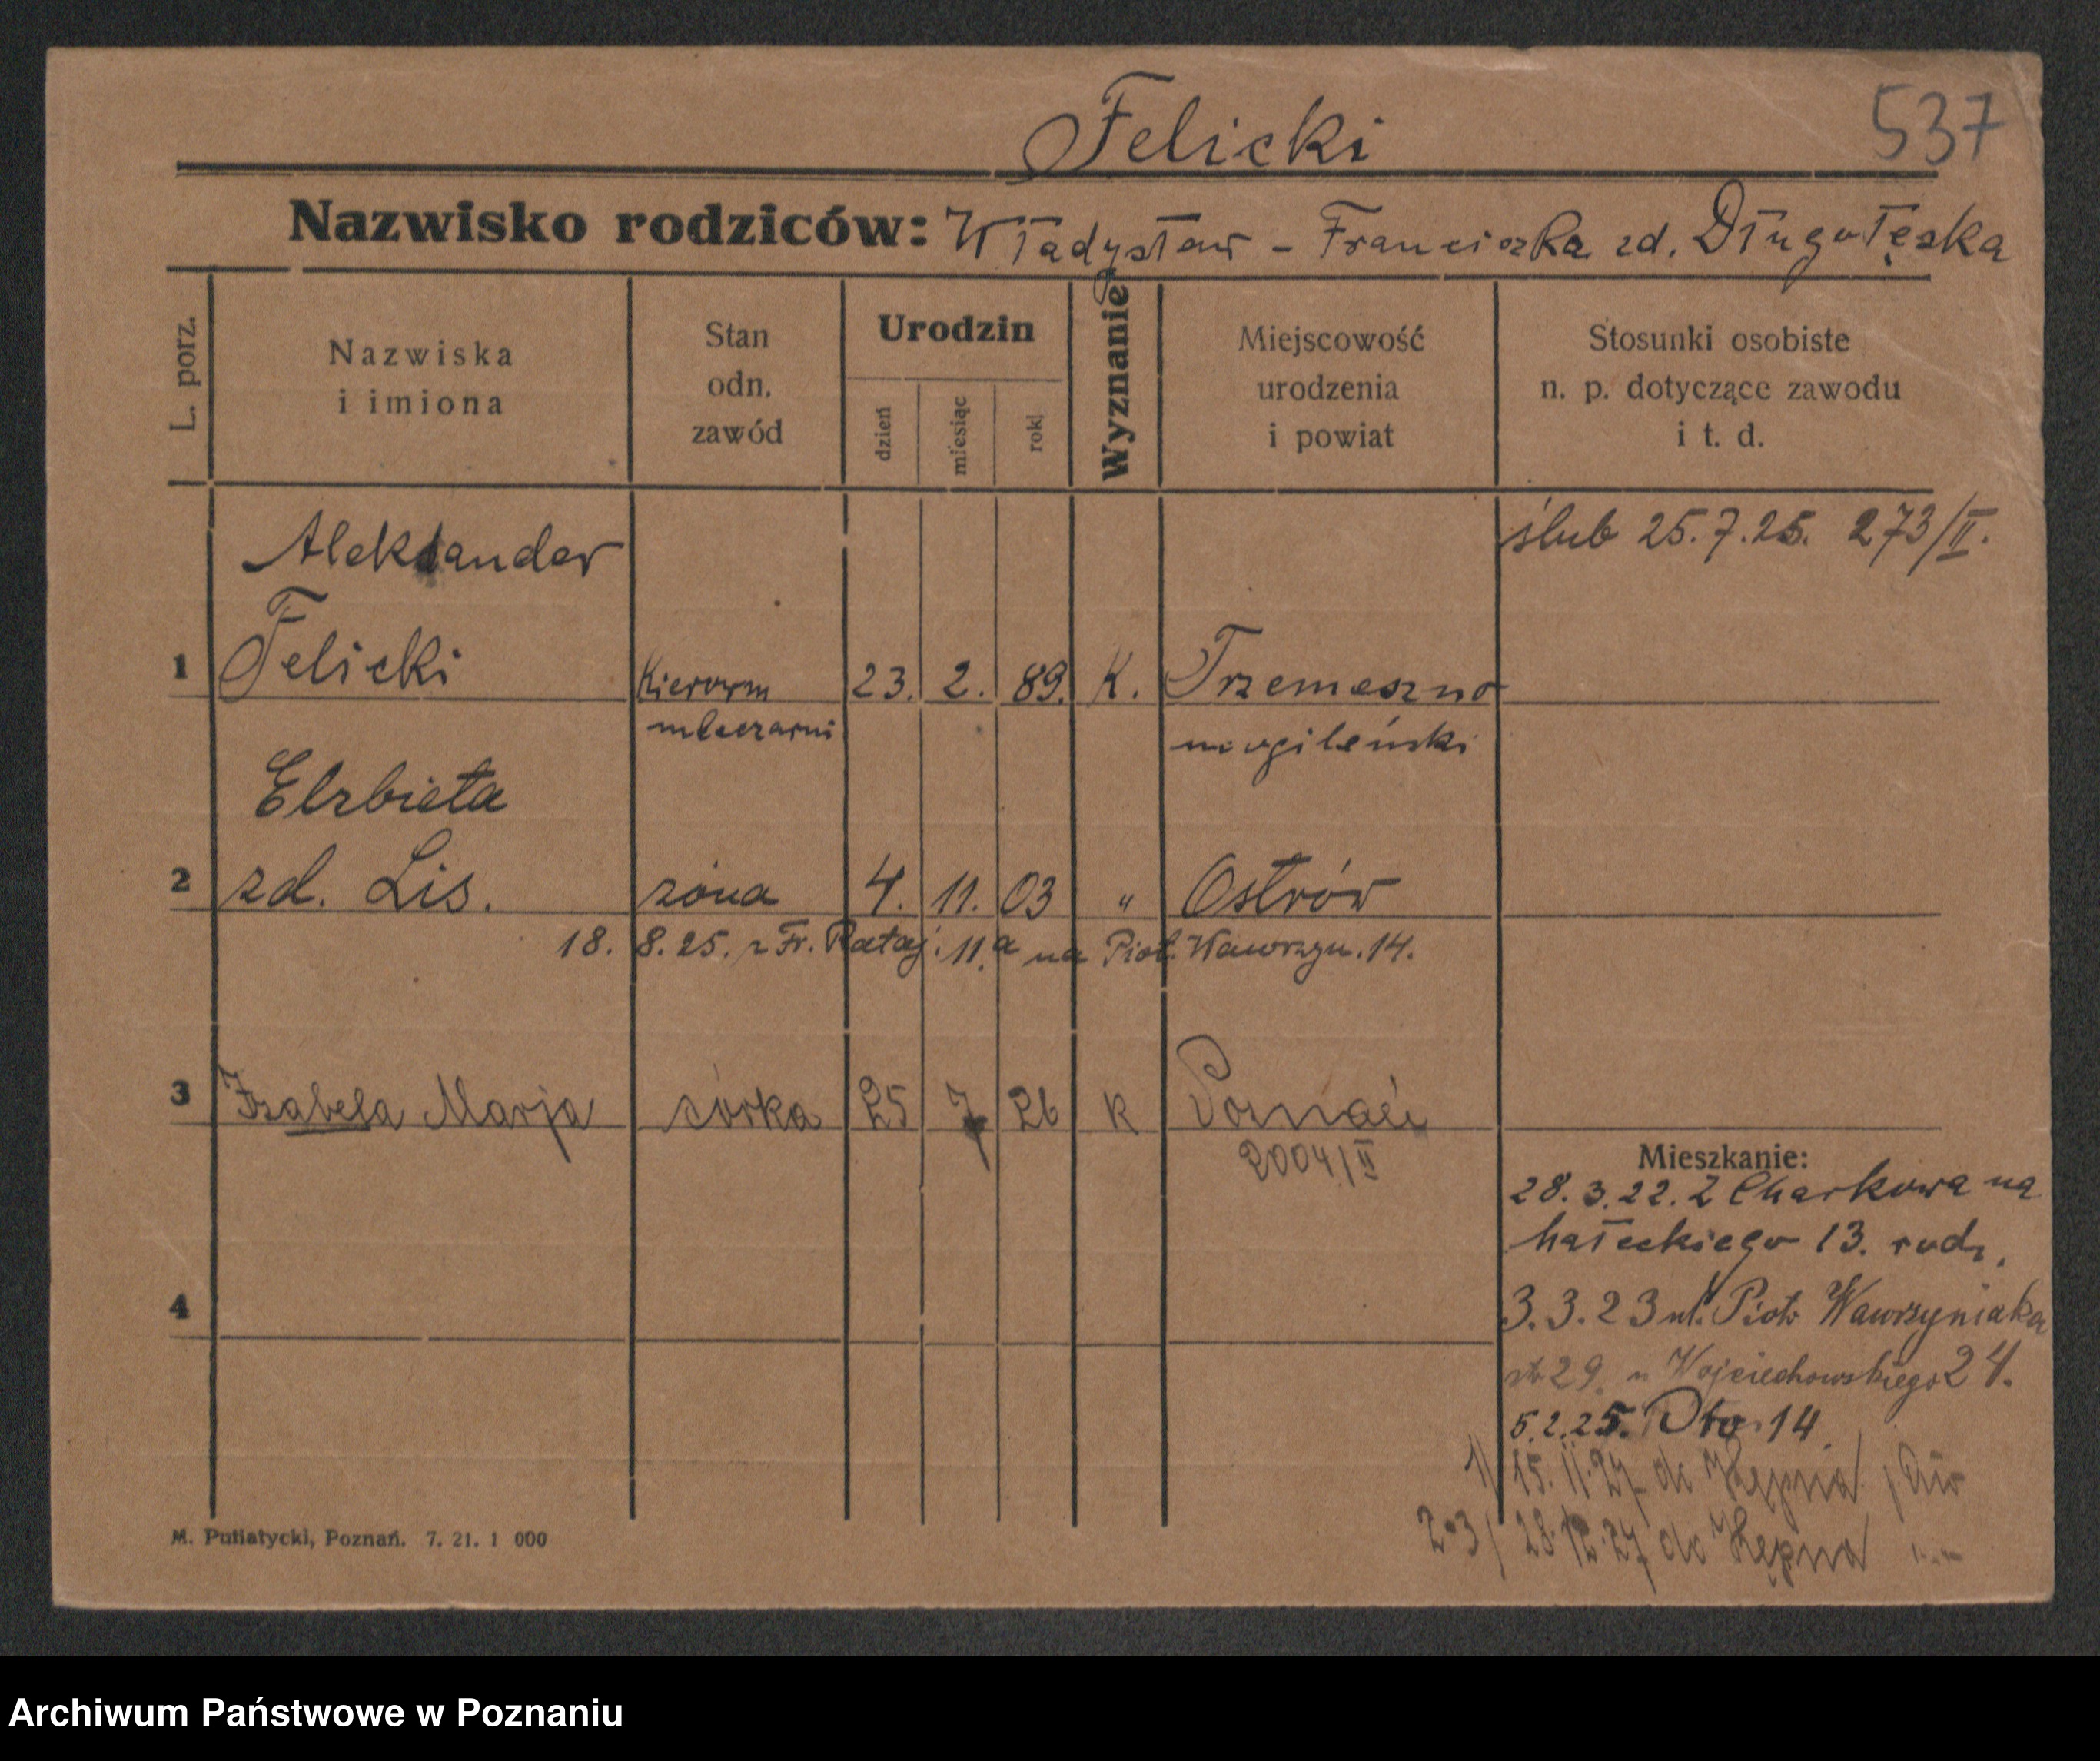 Felicki
537
Nazwisko rodziców: Władysław - Franciszka zd. Długołęska
L. porz.
Nazwiska
i imiona
Stan
odn.
zawód
Urodzin
dzień
miesiąc
rok
Wyznanie
Miejscowość
urodzenia
i powiat
Stosunki osobiste
n. p. dotyczące zawodu
i t. d.
ślub 25.7.25. 273/II.
Aleksander
1 Felicki Kierown 23. 2. 89. K. Trzemeszno
mleczarni mogileński
Elzbieta
2 zd. Lis. żona 4. 11. 03 " Ostrów
18. 8. 25. z Fr. Rataj. 11.a na Piot. Wawrzyn. 14.
3 Izabela Marja córka 25 7 26 K Poznań
2004/II
Mieszkanie:
28. 3. 22. Z Charkowa na
Małeckiego 13. rodz.
3. 3. 23 ul. Piotr Wawrzyniaka
29. u Wojciechowskiego 24.
4
5. 2. 25. 14.
1/ 15. 11. 27 do Kępna
2-3/ 28. 12. 27 do Kępna
M. Putiatycki, Poznań. 7. 21. 1 000
Archiwum Państwowe w Poznaniu